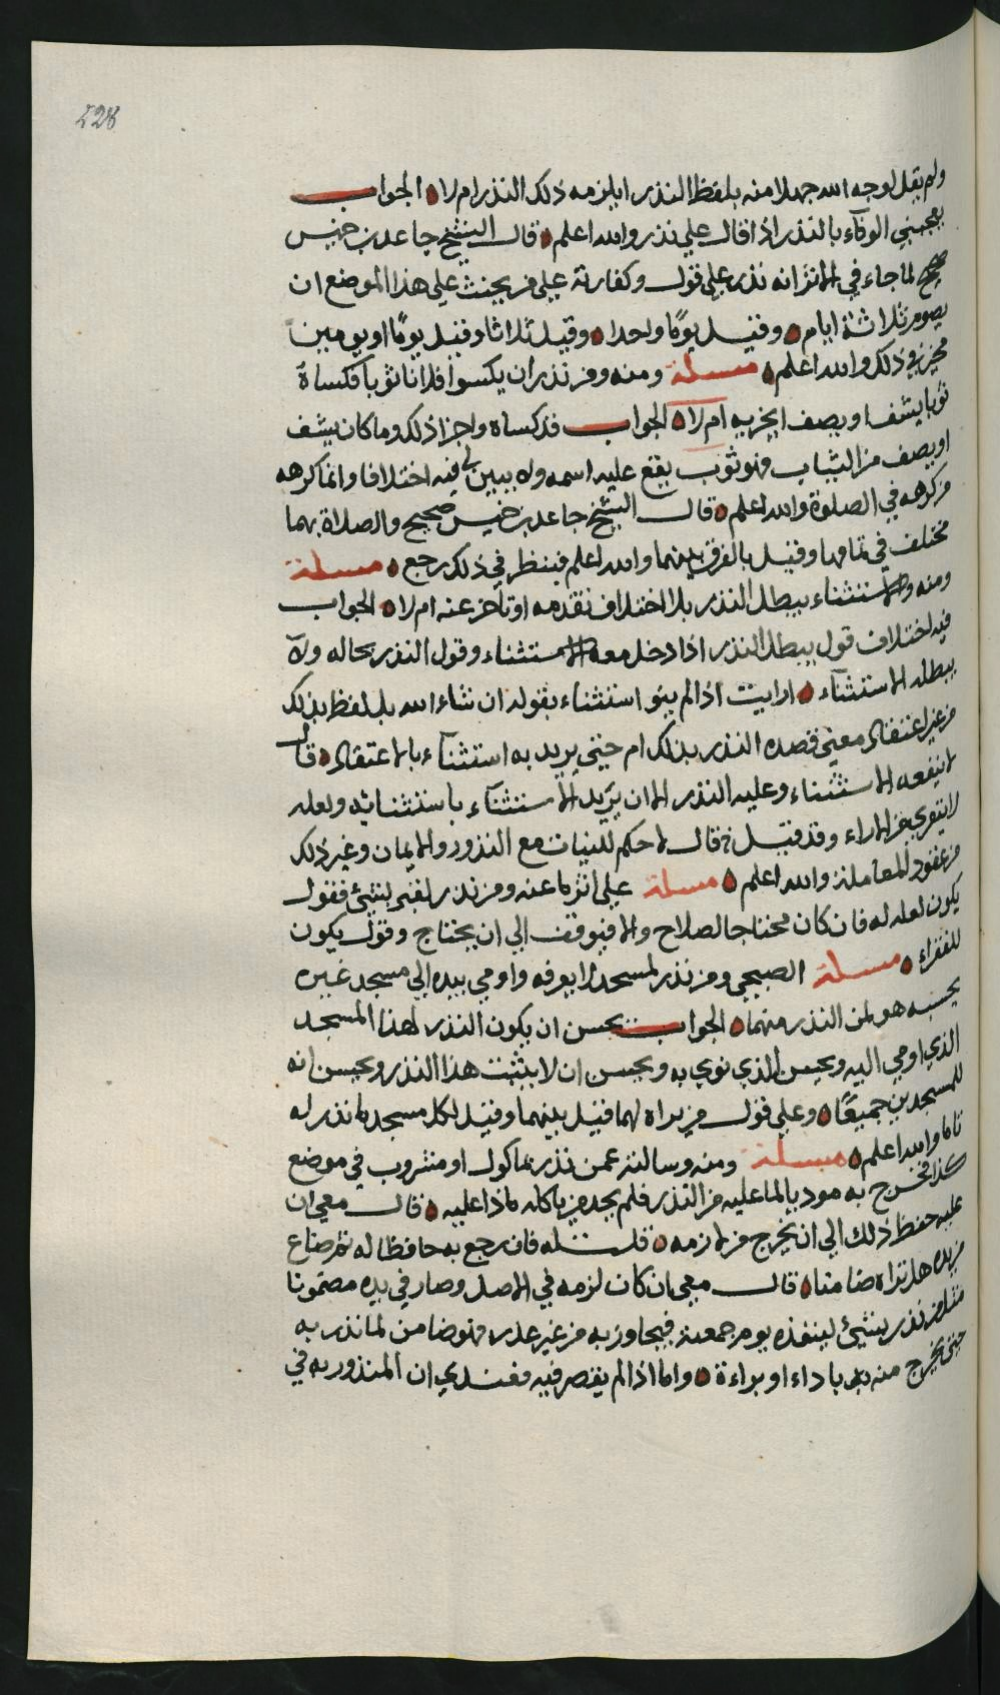 528
ولم يقل لوجه الله جهلا منه بلفظ النذر ايلزمه ذلك النذر ام لا الجواب
يعجبني الوفآء بالنذر اذا قال علي نذر والله اعلم قال الشيخ جاعد بن خميس
صحيح لما جاء في الاثر انه نذر علي قول وكفارته علي من يحنث علي هذا الموضع ان
يصوم ثلاثة ايام وقيل يومًا واحدا وقيل ثلاثا وقيل يومًا او يومين
مجزي ذلك والله اعلم مسئلة ومنه ومن نذر ان يكسوا فلانا ثوبا فكساه
ثوبا يشف او يصف ايجزيه ام لا الجواب قد كساه واجزا ذلك وما كان يشف
او يصف من الثياب فهو ثوب يقع عليه اسمه ولا يبين لي فيه اختلافا وانما كرهه
من كرهه في الصلوة والله اعلم قال الشيخ جاعد بن خميس صحيح والصلاة بهما
مختلف في تمامها وقيل بالفرق بينهما والله اعلم فينظر في ذلك رجع مسئلة
ومنه والاستثناء يبطل النذر بلا اختلاف تقدمه او تأخر عنه ام لا الجواب
فيه اختلاف قول يبطل النذر اذا دخل معه الاستثناء وقول النذر بحاله ولا
يبطله الاستثنآء ارايت اذا لم ينو استثناء بقوله ان شاء الله بل لفظ بذلك
من غير اعتقاد معني قصده النذر بذلك ام حتي يريد به استثنآء بالاعتقاد قال
لا ينفعه الاستثناء وعليه النذر الا ان يريد الاستثنآء باستثنائه ولعله
لا يتعري من الاراء وقد قيل قال لا حكم للنيات مع النذور والايمان وغير ذلك
من عقود المعاملة والله اعلم مسئلة علي اثر ما عنه ومن نذر لقبر بشئ فقول
يكون لعله له فان كان محتاجا لصلاح والا فيوقف الي ان يحتاج وقول يكون
للفقراء مسئلة الصبحي ومن نذر لمسجد لا يعرفه واومي بيده الي مسجد غيره
يحسبه هو لمن النذر منهما الجواب يحسن ان يكون النذر لهذا المسجد
الذي اومي اليه ويحسن للذي نوي به ويحسن ان لا يثبت هذا النذر ويحسن انه
للمسجدين جميعًا وعلي قول من يراه لهما قيل بينهما وقيل لكل مسجد ما نذر له
تاما والله اعلم مسئلة ومنه وسالته عمن نذر بماكول او مشروب في موضع
كذا فخرج به موديا لما عليه من النذر فلم يجد من ياكله ماذا عليه قال معي ان
عليه حفظ ذلك الي ان يخرج من لازمه قلت له فان رجع به حافظا له ثم ضاع
من يده هل تراه ضامنا قال معي ان كان لزمه في الاصل وصار في يده مضمونا
مثل من نذر بشئ لينفذه يوم جمعة فيجاوز به من غير عذر فهو ضامن لما نذر به
حتي يخرج منه باداء او براءة واما اذا لم يقصر فيه فعندي ان المنذور به في